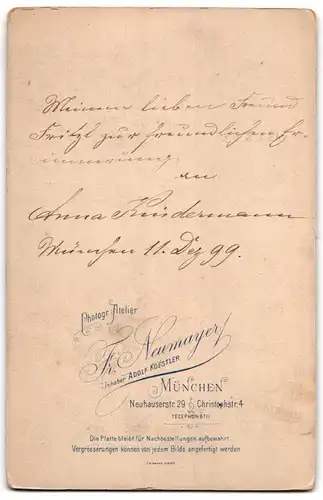 Meinem lieben Freund
Fritzl zur freundlichen Er-
innerung
an
Anna Kindermann
München 11. Dez 99.
Photogr. Atelier
Fr. Neumayer
Inhaber Adolf Koestler
MÜNCHEN
Neuhauserstr. 29 Christophstr. 4
TELEPHON 8711
Die Platte bleibt für Nachbestellungen aufbewahrt.
Vergrösserungen können von jedem Bilde angefertigt werden